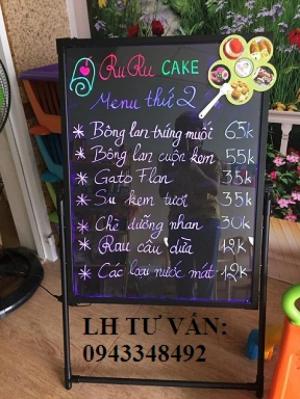 RuRu CAKE
Menu thứ 2
* Bông lan trứng muối 65k
* Bông lan cuộn kem 55k
* Gato Flan 35k
* Su kem tươi 35k
* Chè dưỡng nhan 30k
* Rau câu dừa 12k
* Các loại nước mát 12k
LH TƯ VẤN:
0943348492